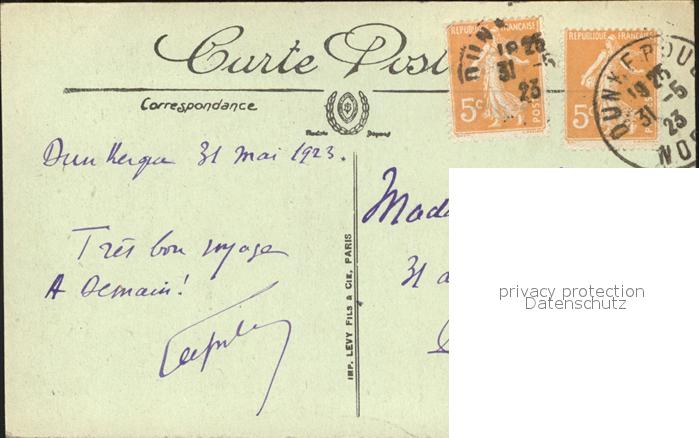 Carte Post
Correspondance
RÉPUBLIQUE FRANÇAISE
5c
POSTES
RÉPUBLIQUE FRANÇAISE
5c
POSTES
DUNK
19 25
31 -5
23
DUNKERQUE
19 25
31 -5
23
NO
Dunkerque 31 mai 1923.
Très bon voyage
A Demain!
Mada
31
IMP. LEVY FILS & CIE, PARIS
privacy protection
Datenschutz